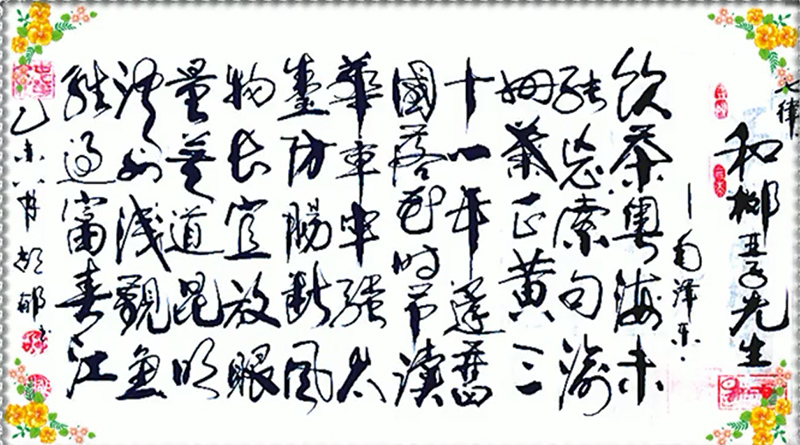 七律
和柳亚子先生
—毛泽东
饮茶粤海未
能忘索句渝
州葉正黄三
十一年還舊
國落花时节读
華章牢骚太
盛防腸断风
物长宜放眼
量莫道昆明
池水浅觀鱼
胜过富春江
乙未八月